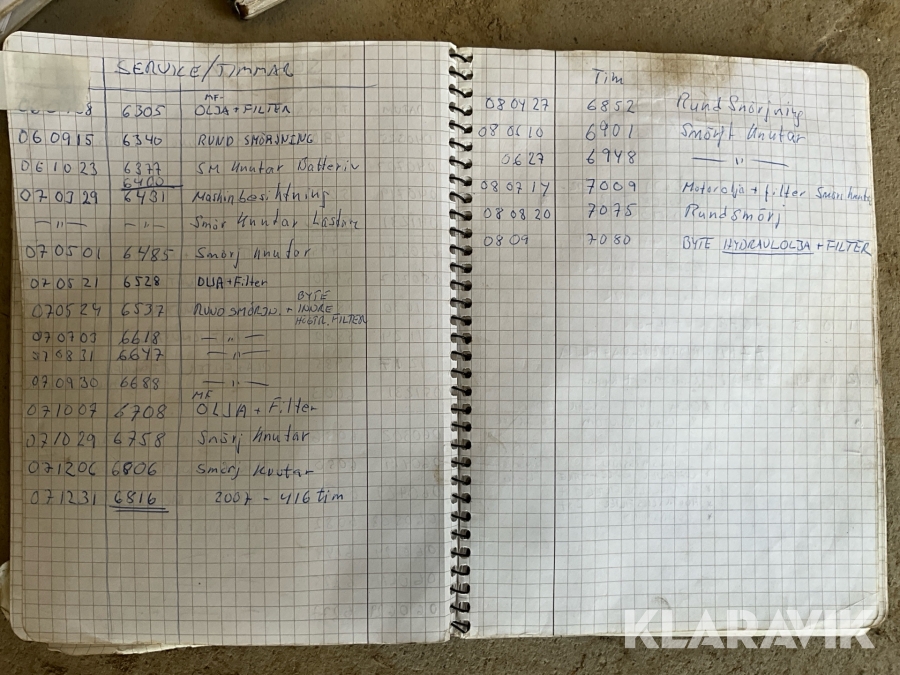 SERVICE/TIMMAR
MF-
8 6305 OLJA + FILTER
060915 6340 RUND SMÖRJNING
061023 6377 SM Knutar Batteriv
6400
070329 6431 Maskinbesiktning
—"— -"- Smör Knutar Lastar
070501 6485 Smörj Knutar
070521 6528 OLJA + Filter
070524 6537 RUND SMÖRJN. + BYTE
INDRE
FILTER
070703 6618 —"—
070831 6647 —"—
070930 6688 —"—
MF
071007 6708 OLJA + Filter
071029 6758 Smörj Knutar
071206 6806 Smörj Knutar
071231 6816 2007 - 416 tim
Tim
080427 6852 Rund Smörjning
080610 6901 Smörjt Knutar
0627 6948 —"—
080714 7009 Motorolja + filter Smörj knutar
080820 7075 Rundsmörj
0809 7080 BYTE HYDRAULOLJA + FILTER
KLARAVIK